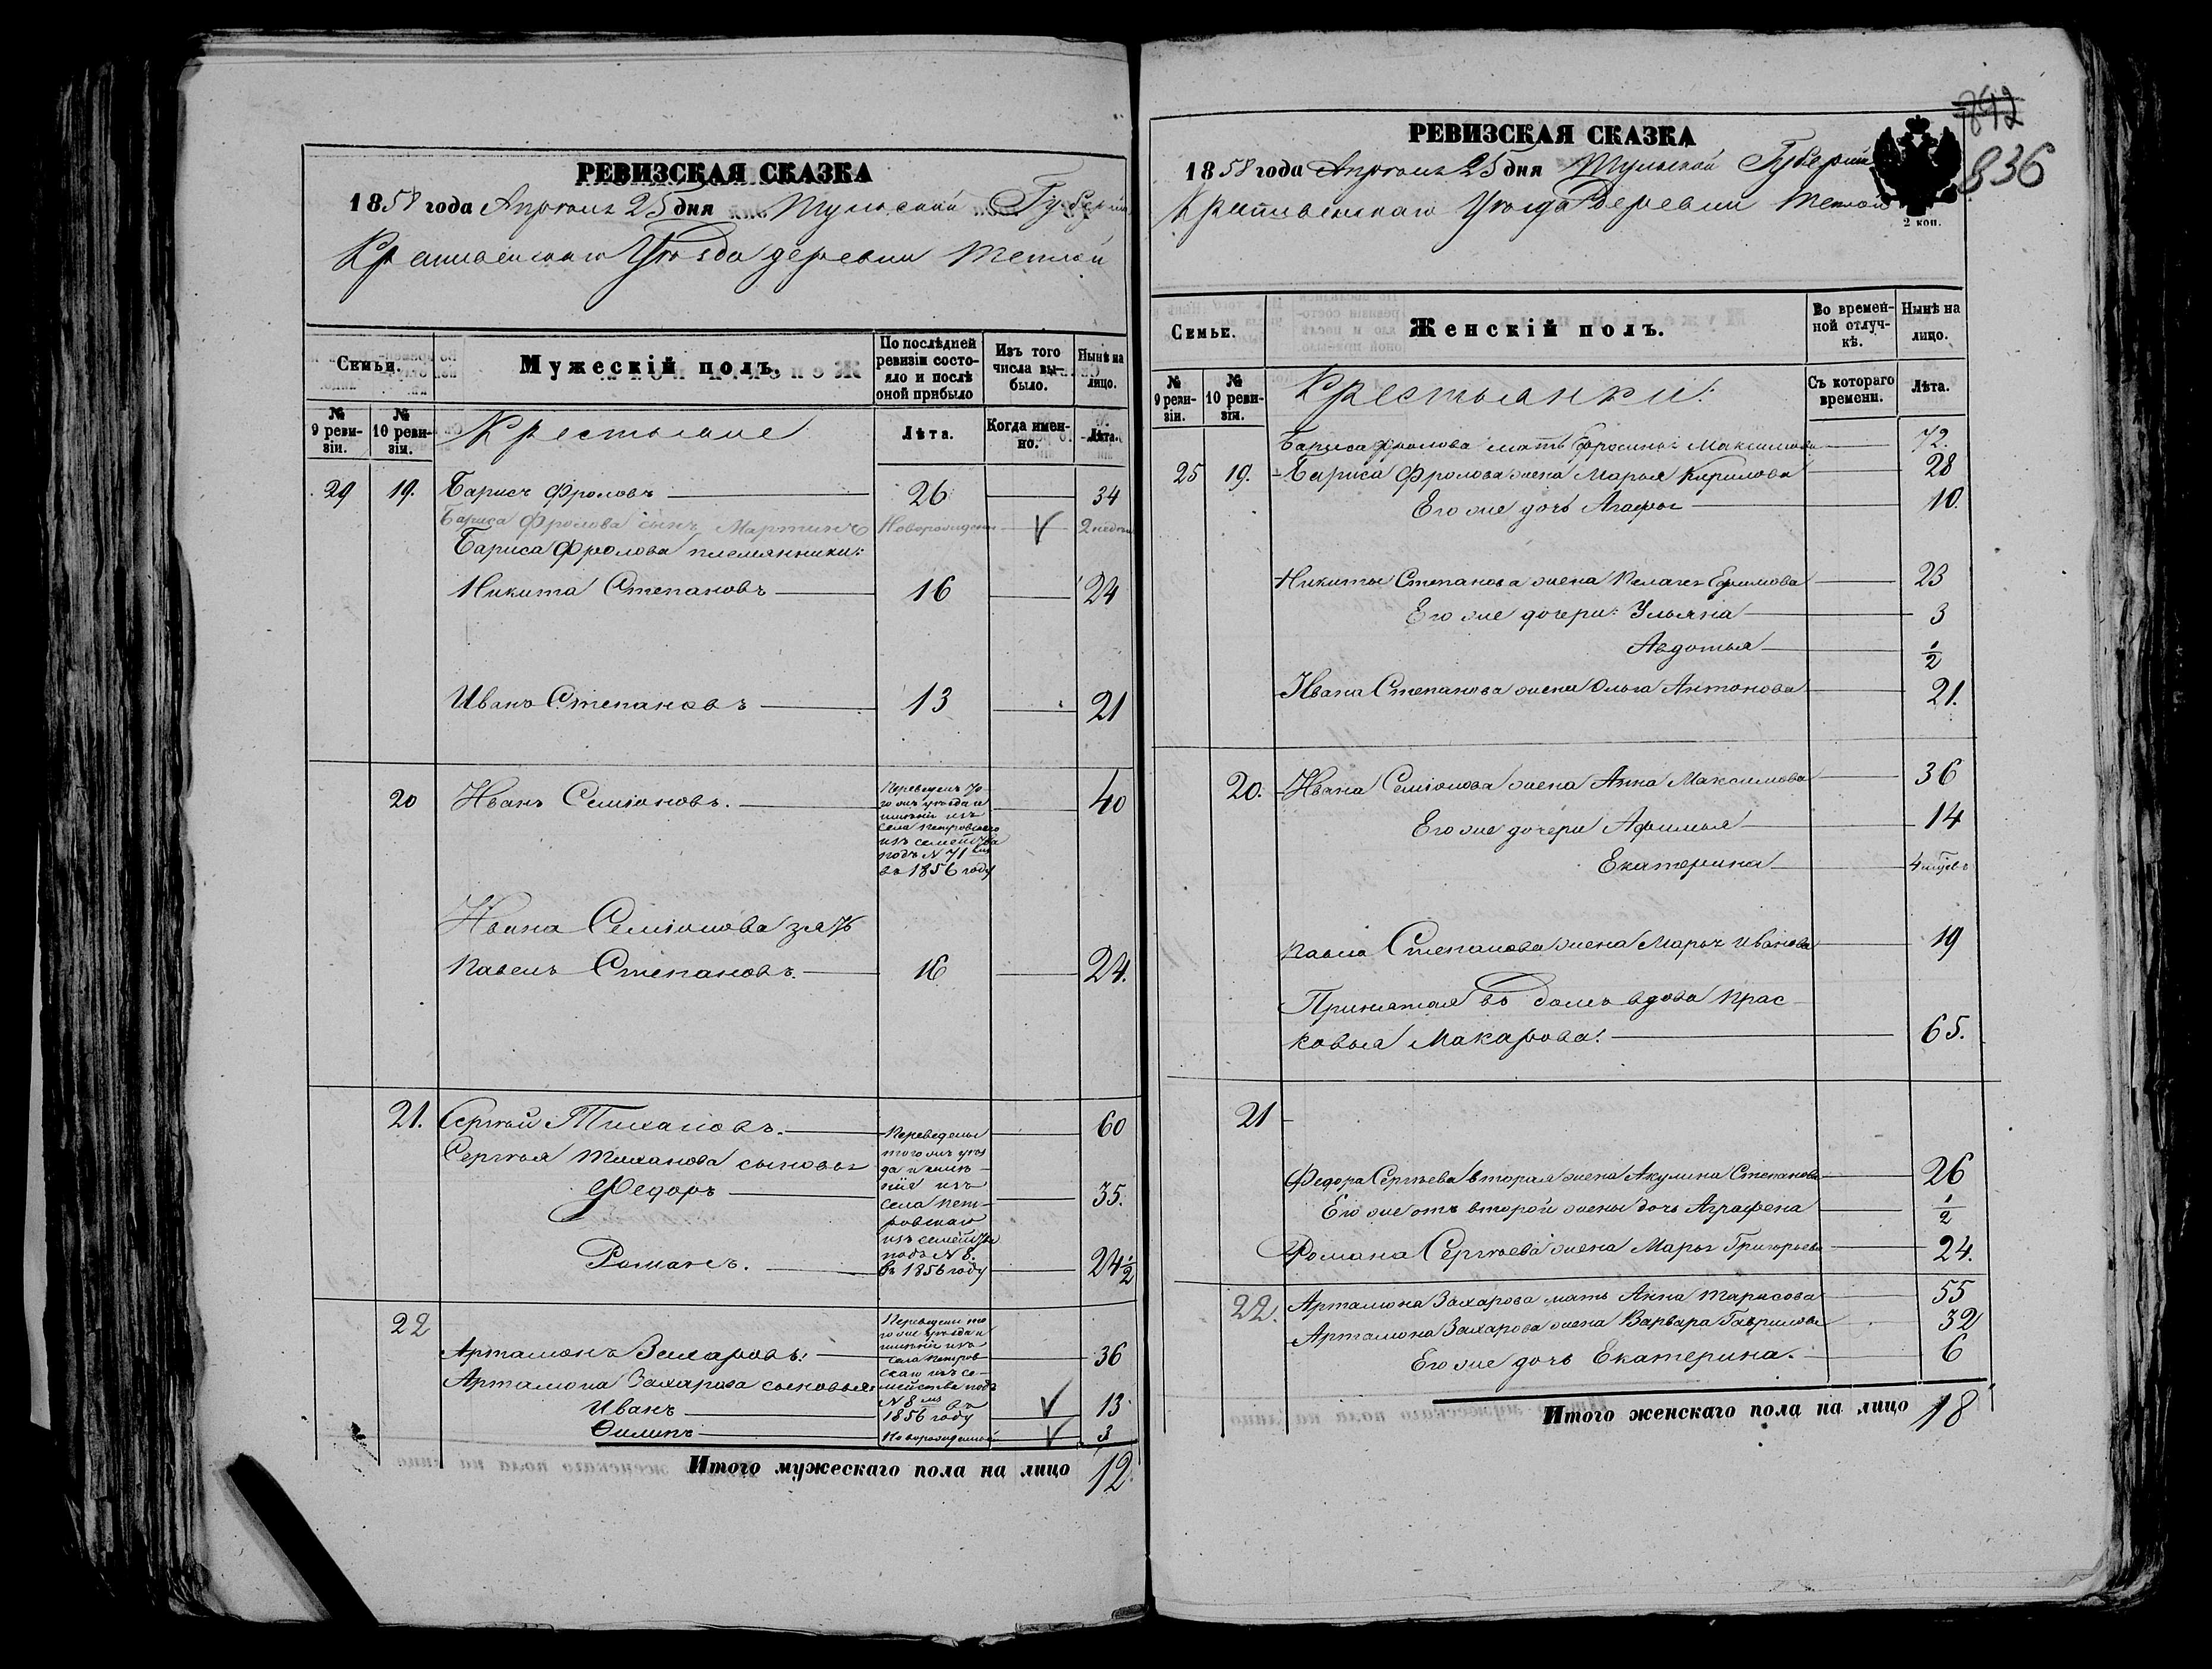 РЕВИЗСКАЯ СКАЗКА
1858 года Апреля 25 дня Тульской Губерніи
Крапивенскаго Уѣзда деревни Теплой
Семьи.
Мужескій полъ.
По послѣдней ревизіи состояло и послѣ оной прибыло
Изъ того числа выбыло.
Нынѣ на лицо.
№ 9 ревизіи.
№ 10 ревизіи.
Крестьяне
Лѣта.
Когда именно.
Лѣта.
29 19. Барисъ Фроловъ 26 34
Бариса Фролова сынъ Мартинъ Новорожденн V 2 недели
Бариса Фролова племянники:
Никита Степановъ 16 24
Иванъ Степановъ 13 21
20 Иванъ Семіоновъ. 40
Переведенъ то
го жъ уѣзда и
имѣнія изъ
села Петровскаго
изъ семейства
подъ N 71
въ 1856 году
Ивана Семіонова зять
Павелъ Степановъ. 16 24.
21. Сергѣй Тихановъ. 60
Сергѣя Тиханова сыновья
Федоръ 35.
Романъ. 24 1/2
Переведены
того жъ уѣз
да и имѣ-
нія изъ
села Пет-
ровскаго
изъ семейства
подъ N 8.
въ 1856 году
22
Артамонъ Захаровъ: 36
Артамона Захарова сыновья:
Иванъ V 13
Филипъ Новорожденный V 3
Переведенъ то
го же уѣзда и
имѣнія изъ
села Петров
скаго изъ се-
мейства подъ
N 8 въ
1856 году
Итого мужескаго пола на лицо 12.
892
836
РЕВИЗСКАЯ СКАЗКА
1858 года Апреля 25 дня Тульской Губерніи
Крапивенскаго Уѣзда Деревни Теплой
2 коп.
Семьи.
Женскій полъ.
Во временной отлучкѣ.
Нынѣ на лицо.
№ 9 ревизіи.
№ 10 ревизіи.
Крестьянки:
Съ котораго времени.
Лѣта.
Бариса Фролова мать Ефросинья Максимова 72.
25 19. Бариса Фролова жена Марья Кирилова 28
Его же дочь Агафья 10.
Никиты Степанова жена Пелагея Ефимова 23
Его же дочери: Ульяна 3
Авдотья 1/2
Ивана Степанова жена Ольга Антонова 21.
20. Ивана Семіонова жена Анна Максимова 36
Его же дочери Афимья 14
Екатерина 4 мѣсяцъ
Павла Степанова жена Марья Иванова 19
Принятая въ домъ вдова Прас
ковья Макарова: 65.
21
Федора Сергѣева вторая жена Акулина Степанова 26
Его же отъ второй жены дочь Аграфена 1/2
Романа Сергѣева жена Марья Григорьева 24.
22. Артамона Захарова мать Анна Тарасова 55
Артамона Захарова жена Варвара Гаврилова 32
Его же дочь Екатерина. 6
Итого женскаго пола на лицо 18